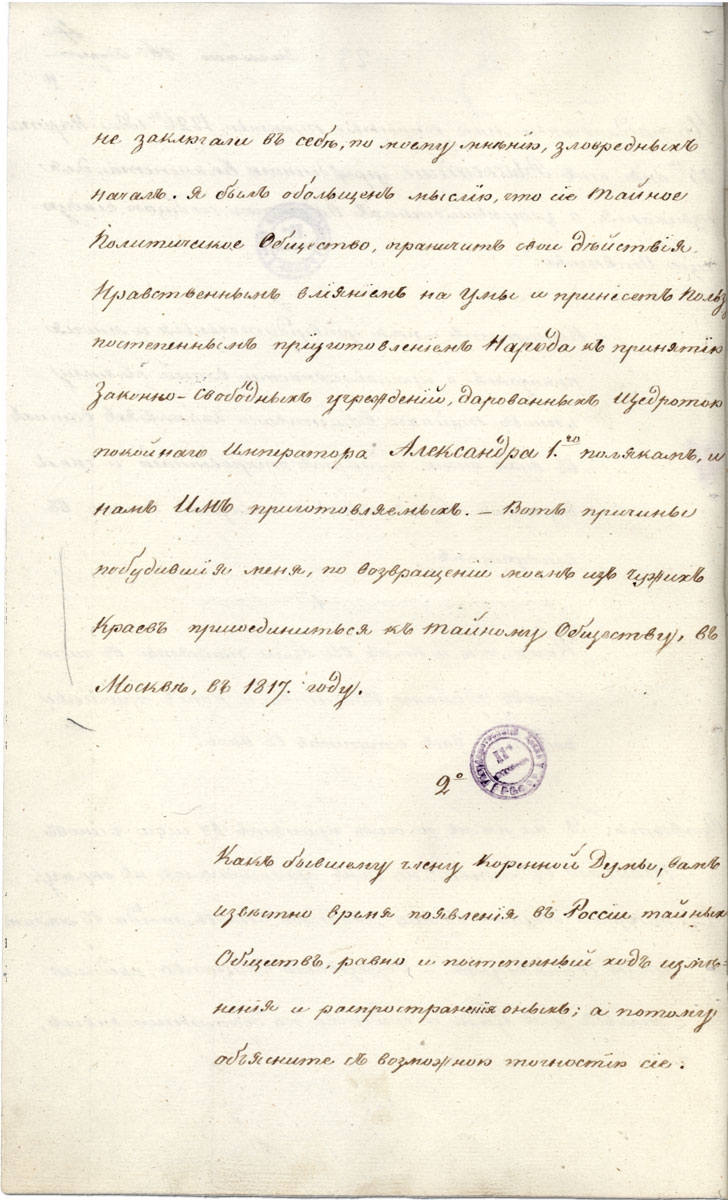 не заключали въ себѣ, по моему мнѣнію, зловредныхъ
началъ. Я былъ обольщенъ мыслію, что сіе Тайное
Политическое Общество, ограничитъ свои дѣйствія
Нравственнымъ вліяніемъ на Умы и принесетъ Пользу
постепеннымъ приуготовленіемъ Народа къ принятію
Законно-Свободныхъ учрежденій, дарованныхъ Щедротою
покойнаго Императора Александра 1.го полякамъ, и
намъ Имъ приготовляемыхъ. – Вотъ причины
побудившія меня, по возвращеніи моемъ изъ чужихъ
Краевъ присоединиться къ Тайному Обществу, въ
Москвѣ, въ 1817. году.
2º
Какъ бывшему члену Коренной Думы, вамъ
извѣстно время появленія въ Россіи тайныхъ
Обществъ, равно и постепенный ходъ измѣ=
ненія и распространенія оныхъ; а потому
объясните съ возможною точностію сіе.